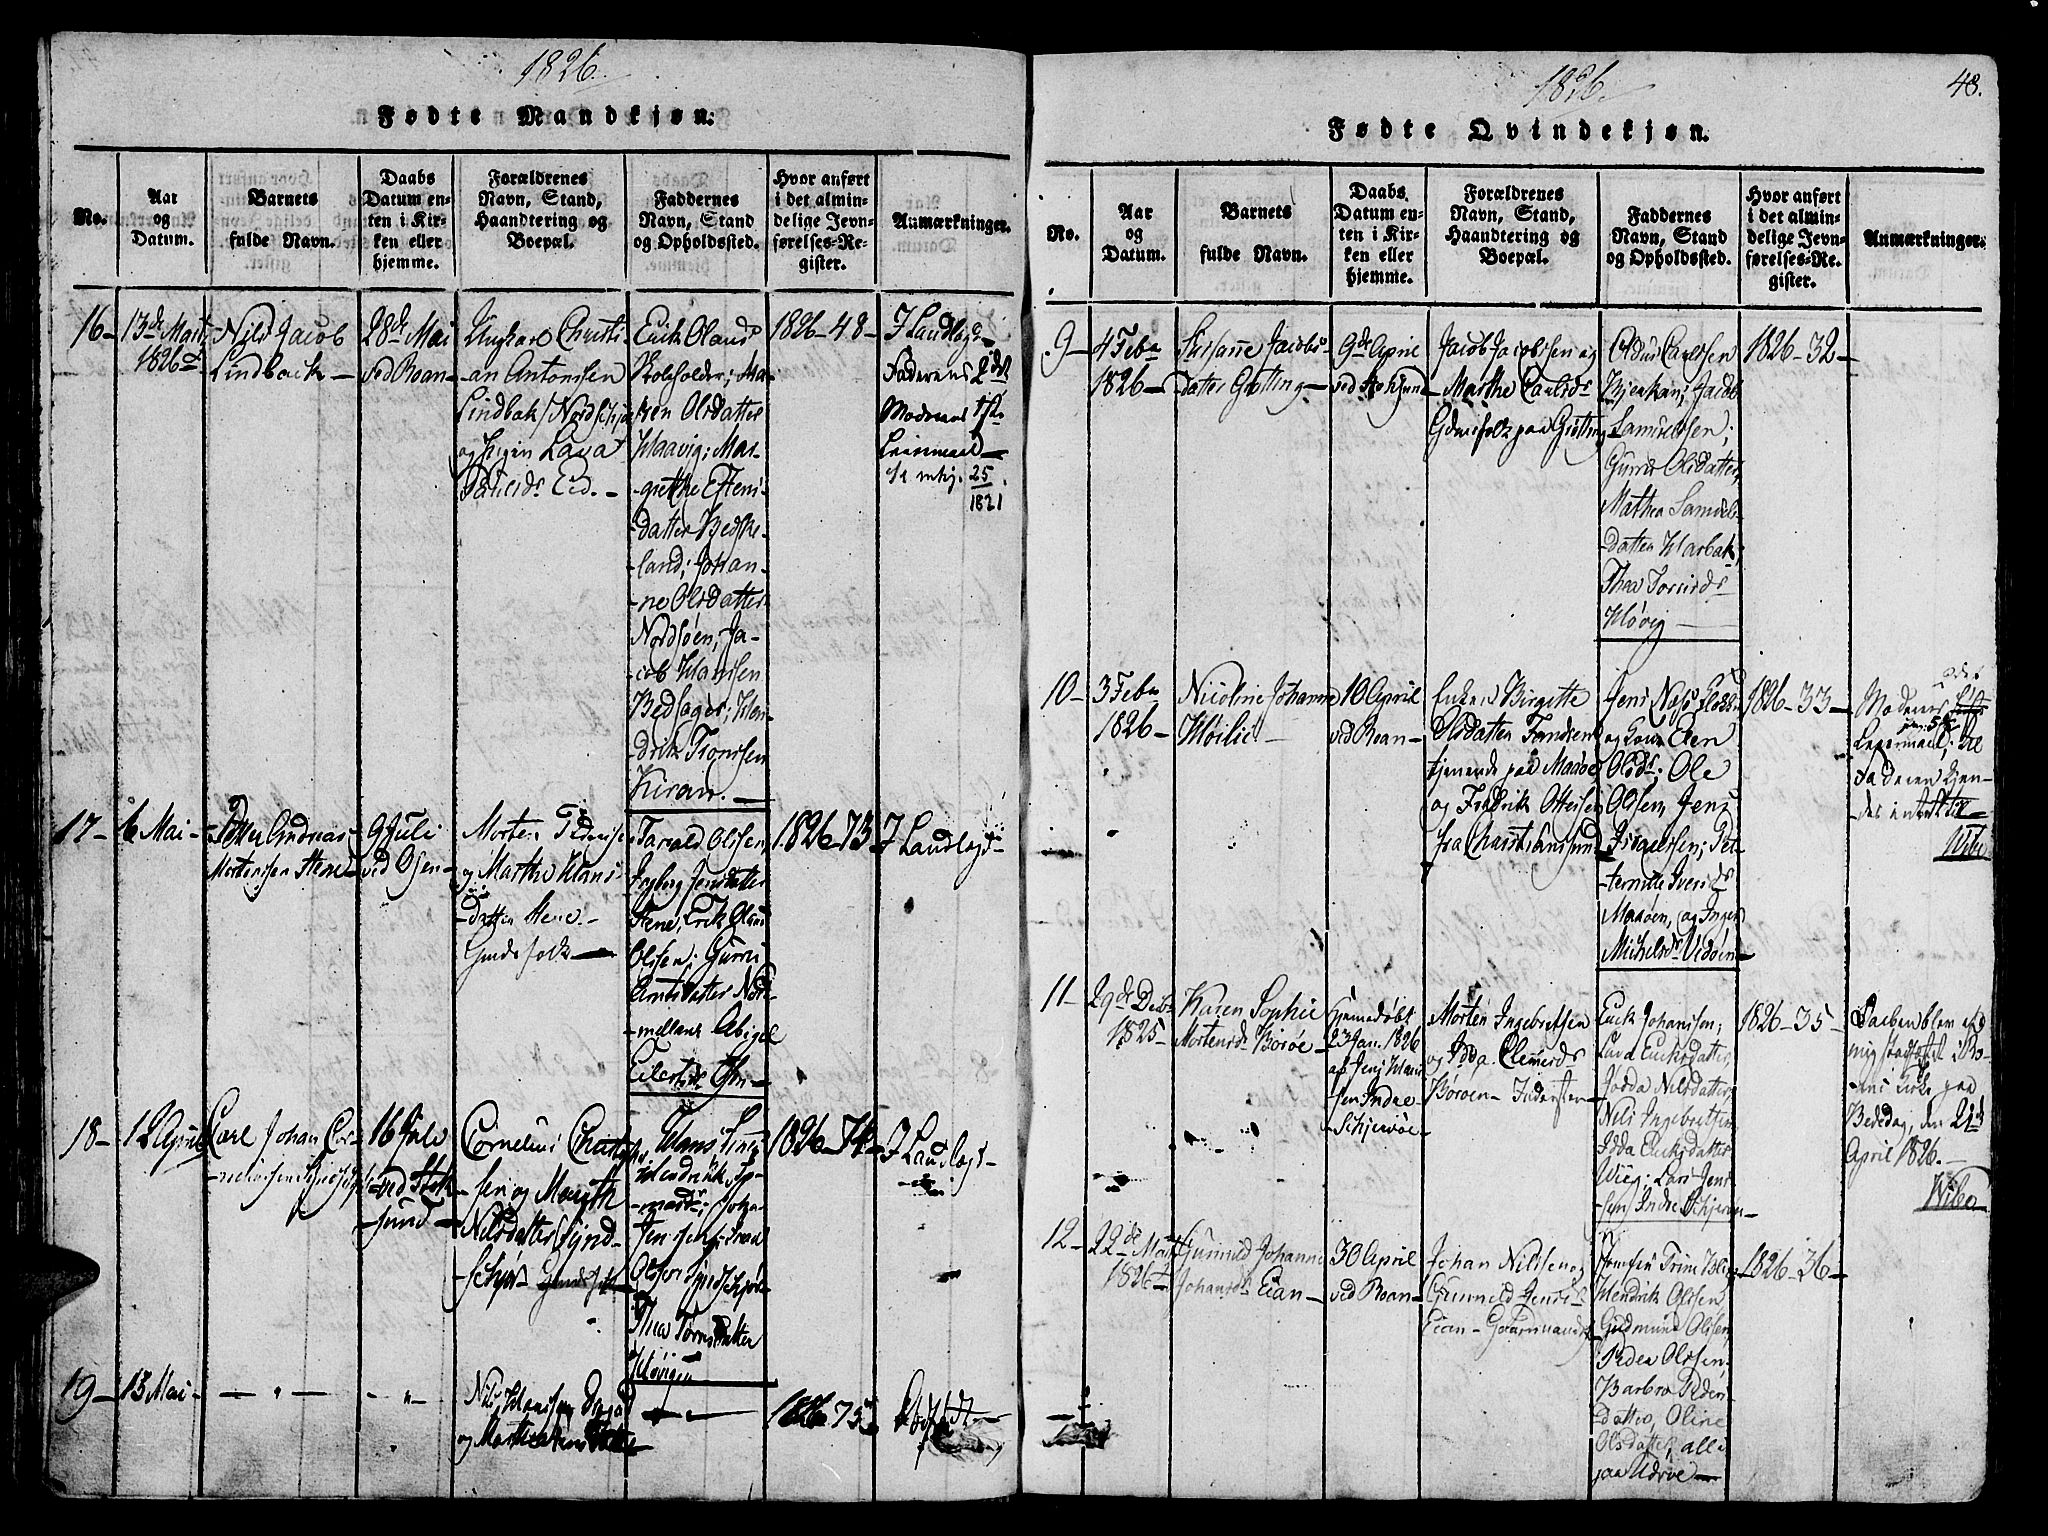 1826.
Fødte Mandkjøn.
No.
Aar
og
Datum.
Barnets
fulde Navn.
Daabs
Datum en-
ten i Kir-
ken eller
hjemme.
Forældrenes
Navn, Stand,
Haandtering og
Boepæl.
Faddernes
Navn, Stand
og Opholdssted.
Hvor anført
i det almin-
delige Jevn-
førelses-Re-
gister.
Anmærkninger.
16-
13de Marti
1826
Nils Jacob
Lindback -
28de Mai
ved Roan-
Ungkarl Christi-
an Antonsen
Lindbak
og Pigen Lava
Paulsdr Eid. -
Erick Oland
Skoleholder; Ma-
ren Olsdatter
Haavig; Mar-
-grethe Estens-
datter Beske-
-land; Johan-
-ne Olsdatter
Nordsøen; Ja-
cob Hansen
Bedsager; Hen-
drik Tronssen
Kiran. -
1826 - 48 -
I Laudlagd
Faderens 2det
Moderens 1ste
Leiermaal -
25
1821
17-
6 Mai -
Peter Andreas
Mortensen Stene
9 Juli
ved Osen-
Morten Pedersen
og Marthe Hans-
-datter Stene -
Gaardfolk -
Tarald Olssen
Ingborg Jensdatter
Stene, Erik Olaus
Olssen; Gurri
Arntsdatter Nord-
-melland Abigel
Eilertsdr Osen -
1826 - 73
I Laudlagd-
18-
12 April
Carl Johan Cor-
-neliussen
16 Juli
ved Stok-
-sund -
Cornelius
-sen og
Nilsdatter Synd-
-schjør -
Hans;
Olssen Syndschjør
Thea Tørrisdatter
Høvigen
1826 - 74 -
I Laudlagd-
19-
13 Mai -
- " -
- " -
Nils Hanssen
og Marthe
- " -
1826 - 75
1826.
48.
Fødte Qvindekjøn.
No.
Aar
og
Datum.
Barnets
fulde Navn.
Daabs
Datum en-
ten i Kir-
ken eller
hjemme.
Forældrenes
Navn, Stand,
Haandtering og
Boepæl.
Faddernes
Navn, Stand
og Opholdssted.
Hvor anført
i det almin-
delige Jevn-
førelses-Re-
gister.
Anmærkninger.
9-
4 Febr
1826 -
Susanne Jacobs-
-datter Grøtting -
9de April
ved Stoksund
Jacob Jacobssen og
Marthe Carlsdr
Gaardfolk paa Grøtting
Carlssen
Jacob
Samuelssen;
Gurru Olsdatter,
Mathea Samuels-
-datter Harbak;
Thea Torrisdr
Høvig -
1826 - 32 -
10-
3 Febr
1826 -
Nicoline Johanne
Høilie -
10 April
ved Roan -
Enken Birgitte
Olsdatter
tjenende paa Maaøe
og Fredrik Ottesen
fra Christiansund
Jens Næss
og Kone Elen
Olsdr; Ole
Olssen, Jens
Israelssen; Pet-
-ternille Iversdr
Maaøen, og Inger
Michelsdr Vedøen -
1826 - 33 -
Moderens
Leiermaal;
Faderen kjen-
des intet til -
Wibe
11-
29de Debr
1825 -
Karen Sophie
Mortensdr Borøe -
Hjemmedøbt
23 Jan. 1826
af Jens Hans-
sen Indre
Schjervøe -
Morten Ingebretsen
og Idda Clemetsdr
Borøen - Indersten
Erick Johanssen;
Lava Ericksdatter,
Jødda Nilsdatter,
Nils Ingebretsen
Idda Ericksdatter
Wiig; Lars Jens-
sen Indre Schjervøe -
1826 - 35 -
Daaben blev af
mig stadfæstet i Ro-
-ans Kirke paa
Bededag, den 21de
April 1826. -
Wibe
12-
22de Marti
1826
Gunnild Johanne
Johansdr Eian -
30 April
ved Roan -
Johan Nilssen og
Gunnild Jensdr
Eian - Gaardmandsf
Jomfru Trine
Hendrik Olssen
Gudmund Olssen,
Peder Olssen
Barbro Peders-
datter, Oline
Olsdatter, alle
paa Udroe -
1826 - 36 -